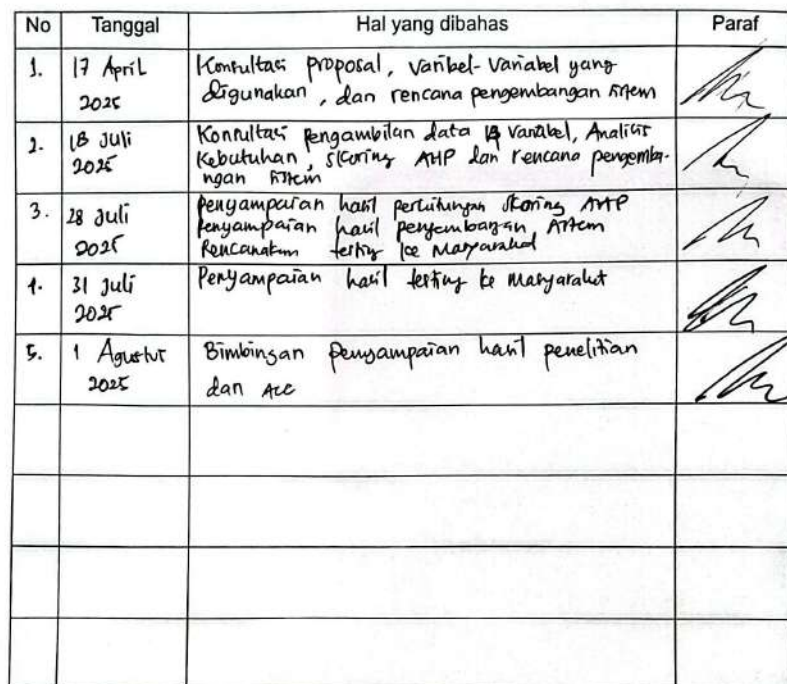 No Tanggal Hal yang dibahas Paraf
1. 17 April 2025 Konsultasi proposal, varibel-variabel yang
digunakan, dan rencana pengembangan sistem
2. 18 Juli 2025 Konsultasi pengambilan data variabel, Analisis
Kebutuhan, skoring AHP dan rencana pengemba-
ngan sistem
3. 28 Juli 2025 Penyampaian hasil perhitungan skoring AHP
Penyampaian hasil pengembangan sistem
Rencanakan testing ke Masyarakat
4. 31 Juli 2025 Penyampaian hasil testing ke Masyarakat
5. 1 Agustus 2025 Bimbingan penyampaian hasil penelitian
dan Acc